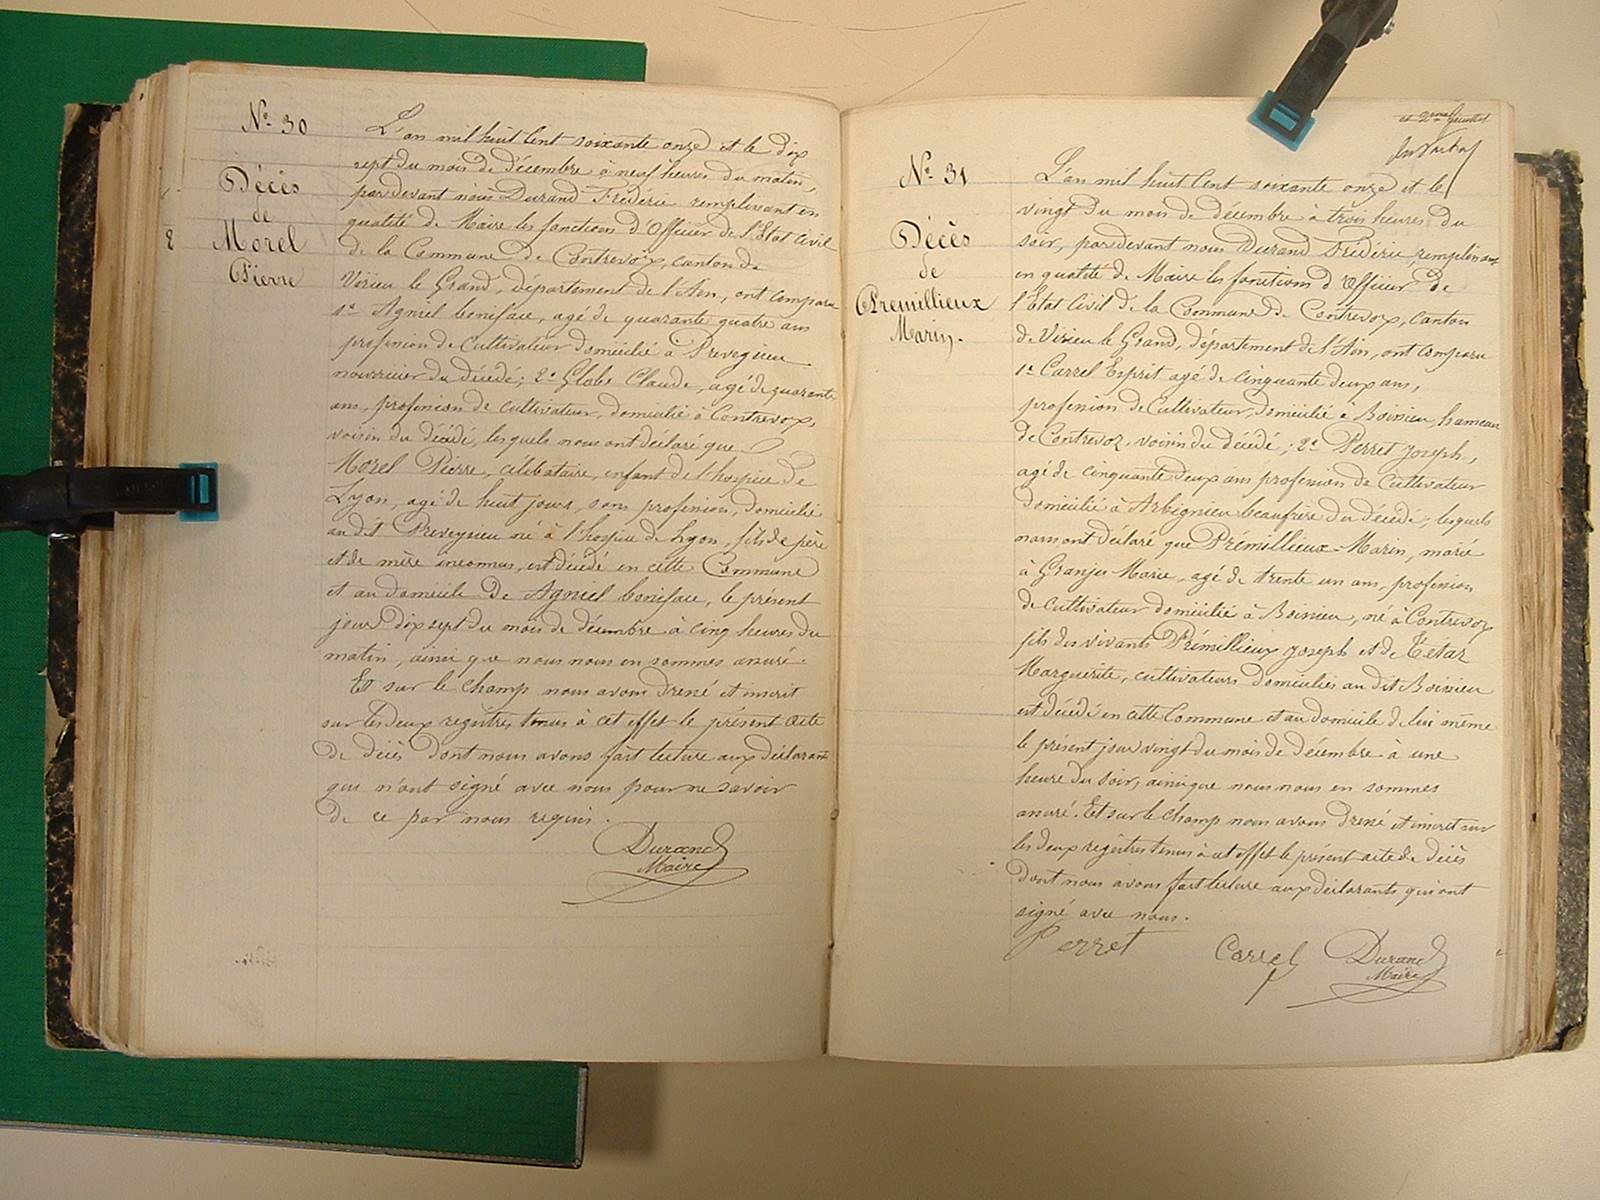 Nº 30
Décès
de
Morel
Pierre
L'an mil huit cent soixante onze et le dix
sept du mois de décembre à neuf heures du matin,
pardevant nous Durand Frédéric remplissant en
qualité de Maire les fonctions d'Officier de l'Etat civil
de la Commune de Contrevoz, canton de
Virieu le Grand, département de l'Ain, ont comparu
1º Agniel boniface, agé de quarante quatre ans
profession de Cultivateur domicilié à Preveyzieu
nourricier du décédé; 2º Globe Claude, agé de quarante
ans, profession de cultivateur, domicilié à Contrevoz,
voisin du décédé, lesquels nous ont déclaré que
Morel Pierre, célibataire, enfant de l'hospice de
Lyon, agé de huit jours, sans profession, domicilié
au dit Preveyzieu né à l'hospice de Lyon, fils de père
et de mère inconnus, est décédé en cette Commune
et au domicile de Agniel boniface, le présent
jour dix sept du mois de décembre à cinq heures du
matin, ainsi que nous nous en sommes assuré.
Et sur le champ nous avons dressé et inscrit
sur les deux registres tenus à cet effet le présent acte
de décès dont nous avons fait lecture aux déclarants
qui n'ont signé avec nous pour ne savoir
de ce par nous requis.
Durand
Maire
et 2me feuillet
Nº 31
Décès
de
Premillieux
Marin.
L'an mil huit cent soixante onze et le
vingt du mois de décembre à trois heures du
soir, pardevant nous Durand Frédéric remplissant
en qualité de Maire les fonctions d'Officier de
l'Etat Civil de la Commune de Contrevoz, canton
de Virieu le Grand, département de l'Ain, ont comparu
1º Carrel Esprit agé de cinquante deux ans,
profession de Cultivateur, domicilié à Boissieu, hameau
de Contrevoz, voisin du décédé; 2º Perret Joseph,
agé de cinquante deux ans profession de Cultivateur
domicilié à Arbignieu beaufrère du décédé; lesquels
nous ont déclaré que Prémillieux Marin, marié
à Granjer Marie, agé de trente un ans, profession
de cultivateur domicilié à Boissieu, né à Contrevoz
fils des vivants Prémillieux Joseph et de Tétaz
Marguerite, cultivateurs domiciliés au dit Boissieu
est décédé en cette Commune et au domicile de lui même
le présent jour vingt du mois de décembre à une
heure du soir, ainsi que nous nous en sommes
assuré. Et sur le champ nous avons dressé et inscrit sur
les deux registres tenus à cet effet le présent acte de décès
dont nous avons fait lecture aux déclarants qui ont
signé avec nous.
Perret Carrel Durand
Maire